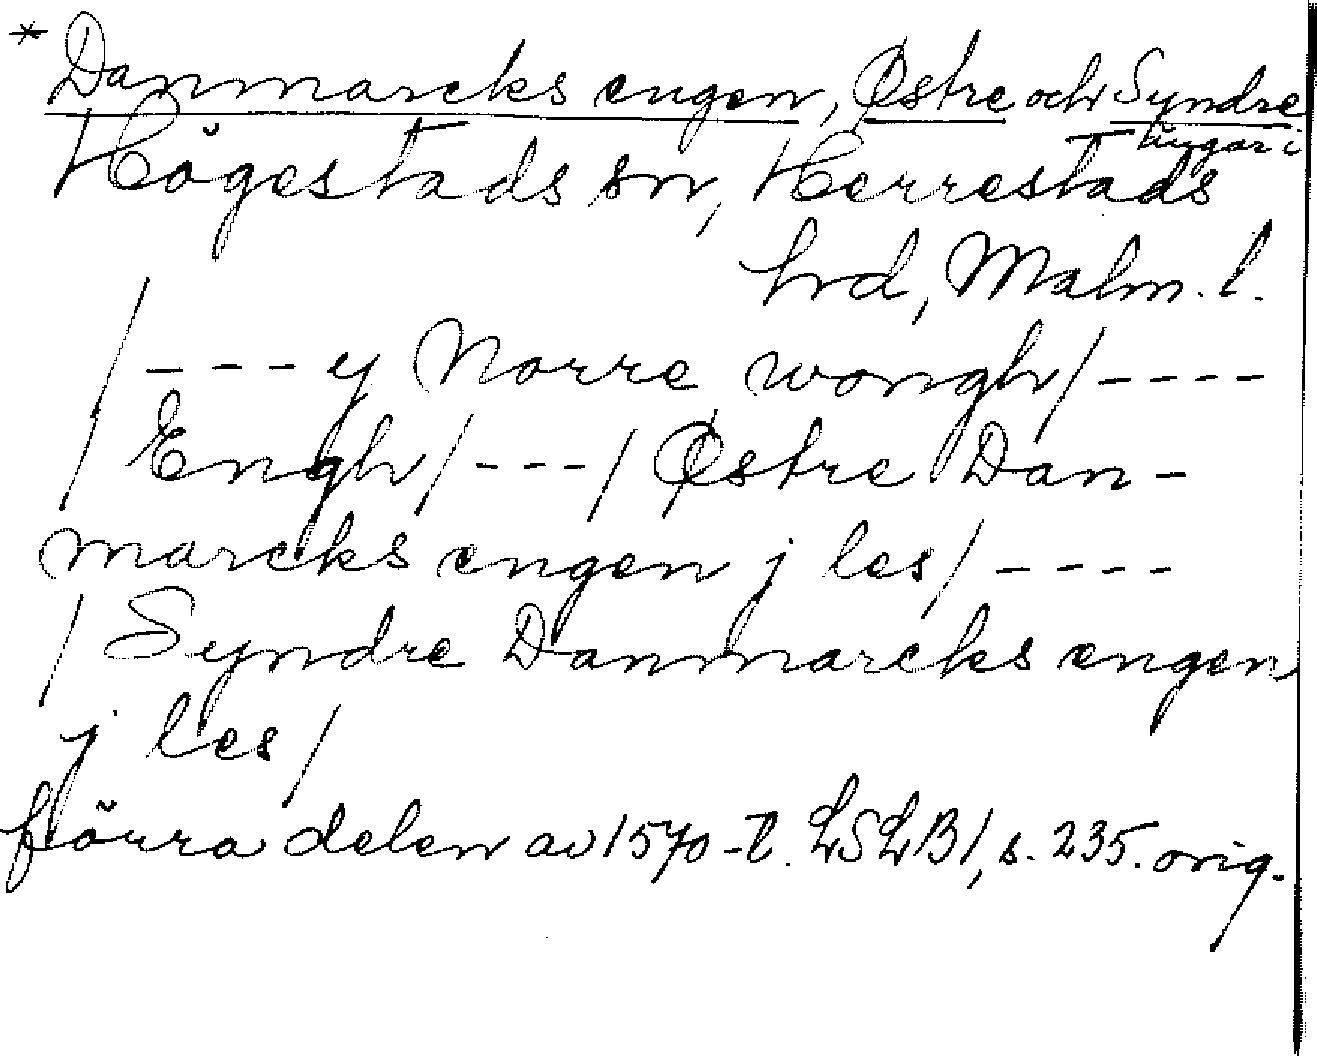 * Danmarcks engen, Østre och Syndre
tingar i
Högestads sn, Herrestads
hrd, Malm. l.
/ - - - y Norre wongh / - - - -
Engh / - - - / Østre Dan-
marcks engen j les / - - - -
/ Syndre Danmarcks engen
j les /
förra delen av 1570-t. LSLB 1, s. 235. orig.